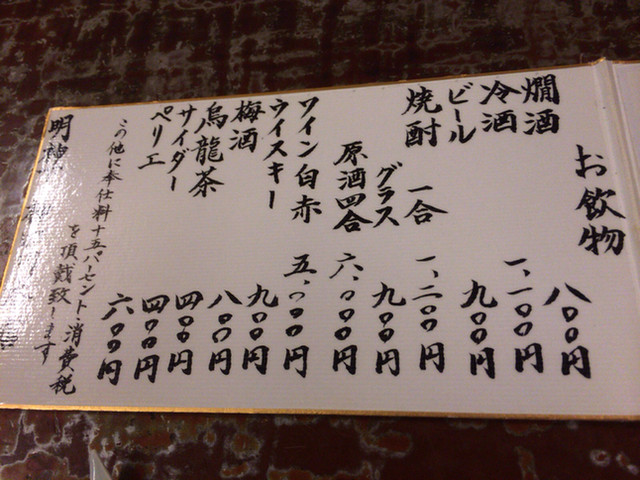 お飲物
燗酒 八〇〇円
冷酒 一、一〇〇円
ビール 九〇〇円
焼酎 一合 一、二〇〇円
グラス 九〇〇円
原酒四合 六、〇〇〇円
ワイン白赤 五、〇〇〇円
ウイスキー 九〇〇円
梅酒 八〇〇円
烏龍茶 四〇〇円
サイダー 四〇〇円
ペリエ 六〇〇円
この他に奉仕料十五パーセント消費税
を頂戴致します
明神